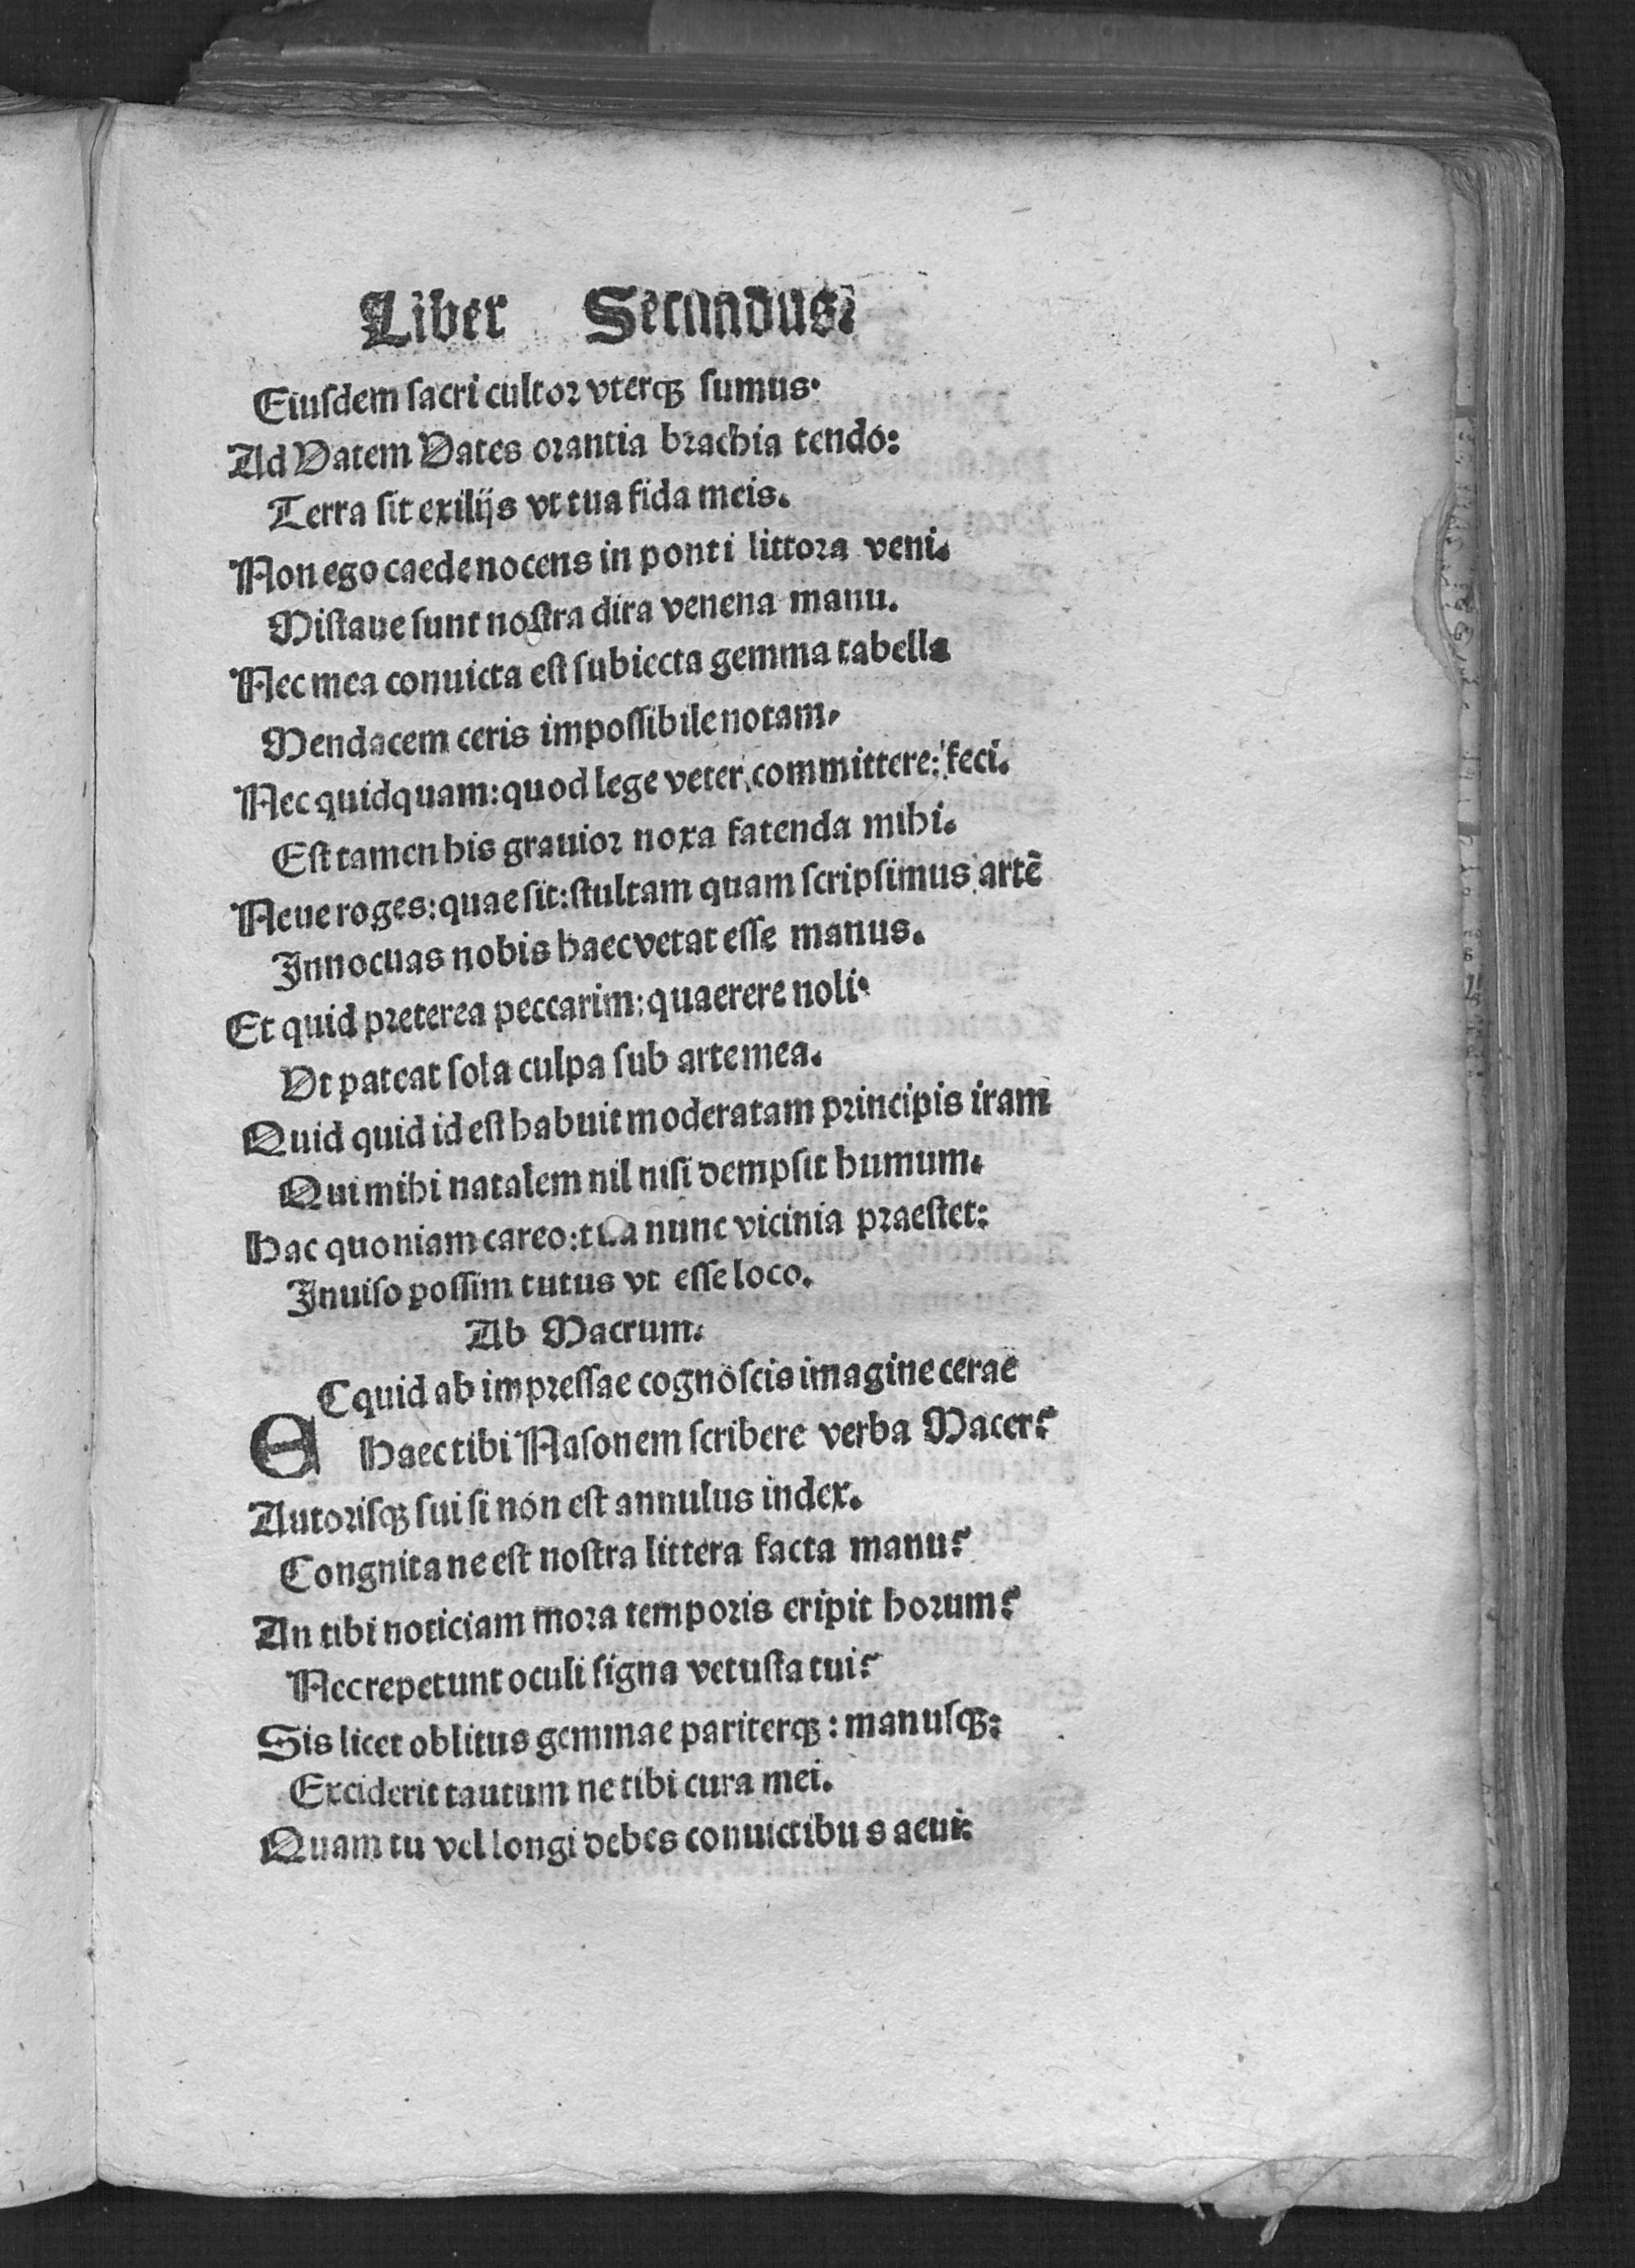 Liber Secundus.
Eiusdem sacri cultor vterq̃ sumus.
Ad Vatem Vates orantia brachia tendo:
Terra sit exilijs vt tua fida meis.
Non ego caede nocens in ponti littora veni.
Mistaue sunt nostra dira venena manu.
Nec mea conuicta est subiecta gemma tabella
Mendacem ceris impossibile notam.
Nec quidquam: quod lege veter committere: feci.
Est tamen his grauior noxa fatenda mihi.
Neue roges: quae sit: stultam quam scripsimus artẽ
Innocuas nobis haec vetat esse manus.
Et quid preterea peccarim: quaerere noli.
Vt pateat sola culpa sub arte mea.
Quid quid id est habuit moderatam principis iram
Qui mihi natalem nil nisi dempsit humum.
Hac quoniam careo: tua nunc vicinia praestet:
Inuiso possim tutus vt esse loco.
Ab Macrum.
ECquid ab impressae cognoscis imagine cerae
Haec tibi Nasonem scribere verba Macer?
Autorisq̃ sui si non est annulus index.
Congnita ne est nostra littera facta manu?
An tibi noticiam mora temporis eripit horum?
Nec repetunt oculi signa vetusta tui?
Sis licet oblitus gemmae pariterq̃: manusq̃:
Exciderit tautum ne tibi cura mei.
Quam tu vel longi debes conuictibus aeui: